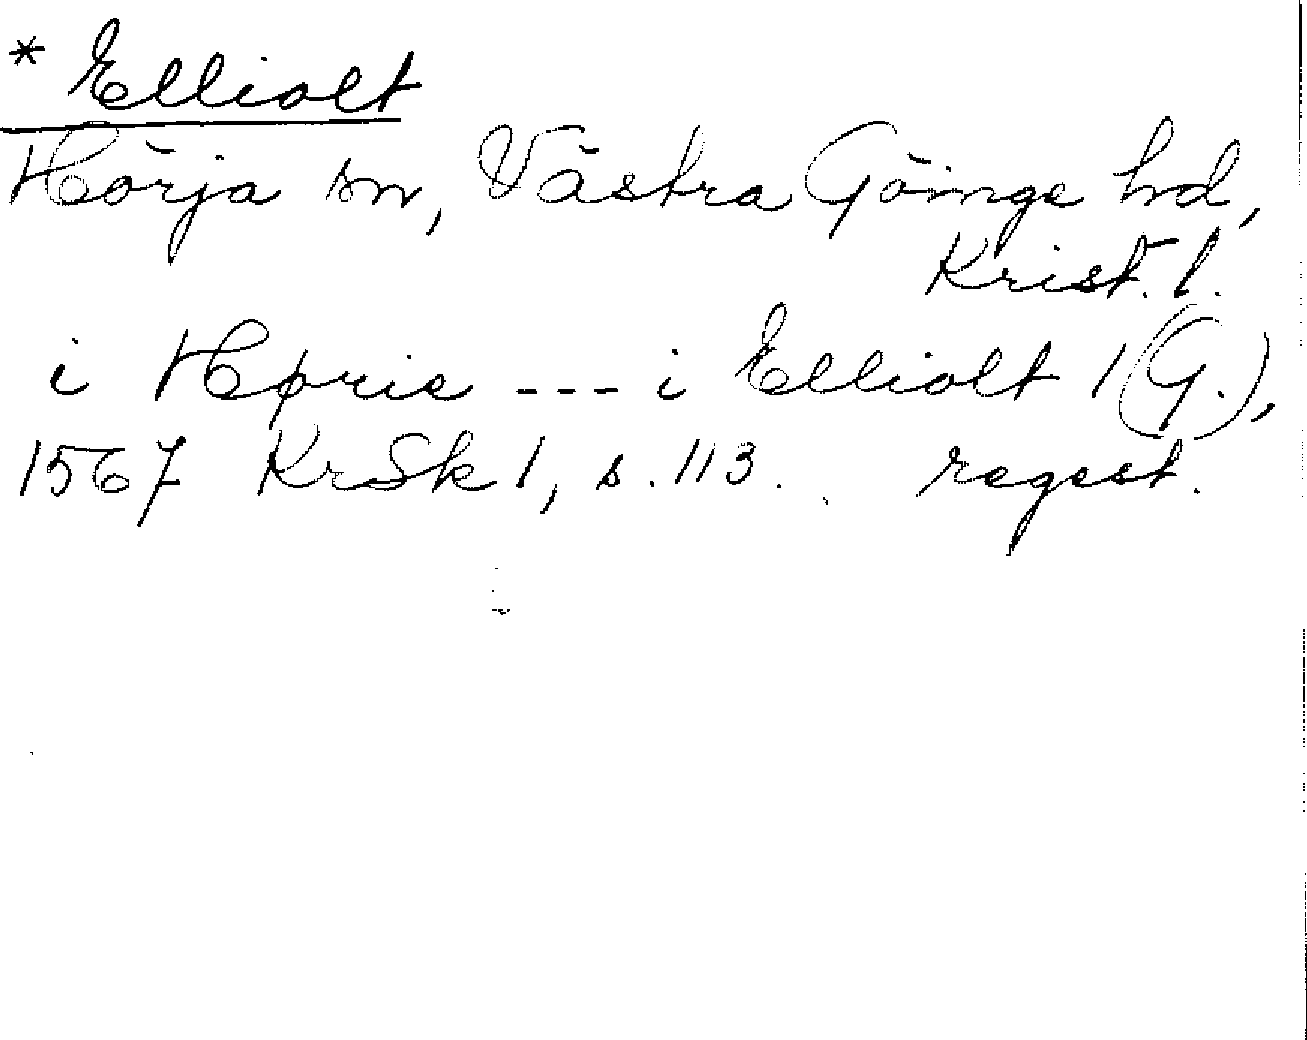 * Elliolt
Hörja sn, Västra Göinge hd,
Krist. l.
i Hørie --- i Elliolt 1 (G.),
1567 KrSk 1, s. 113. regest.